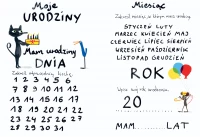 Moje
URODZINY
Mam urodziny
DNIA
1 2 3 4 5 6 7
8 9 10 11 12
13 14 15 16 17
18 19 20 21 22
23 24 25 26 27
28 29 30 31
Miesiąc
STYCZEŃ LUTY
MARZEC KWIECIEŃ MAJ
CZERWIEC LIPIEC SIERPIEŃ
WRZESIEŃ PAŹDZIERNIK
LISTOPAD GRUDZIEŃ
ROK
20
MAM LAT